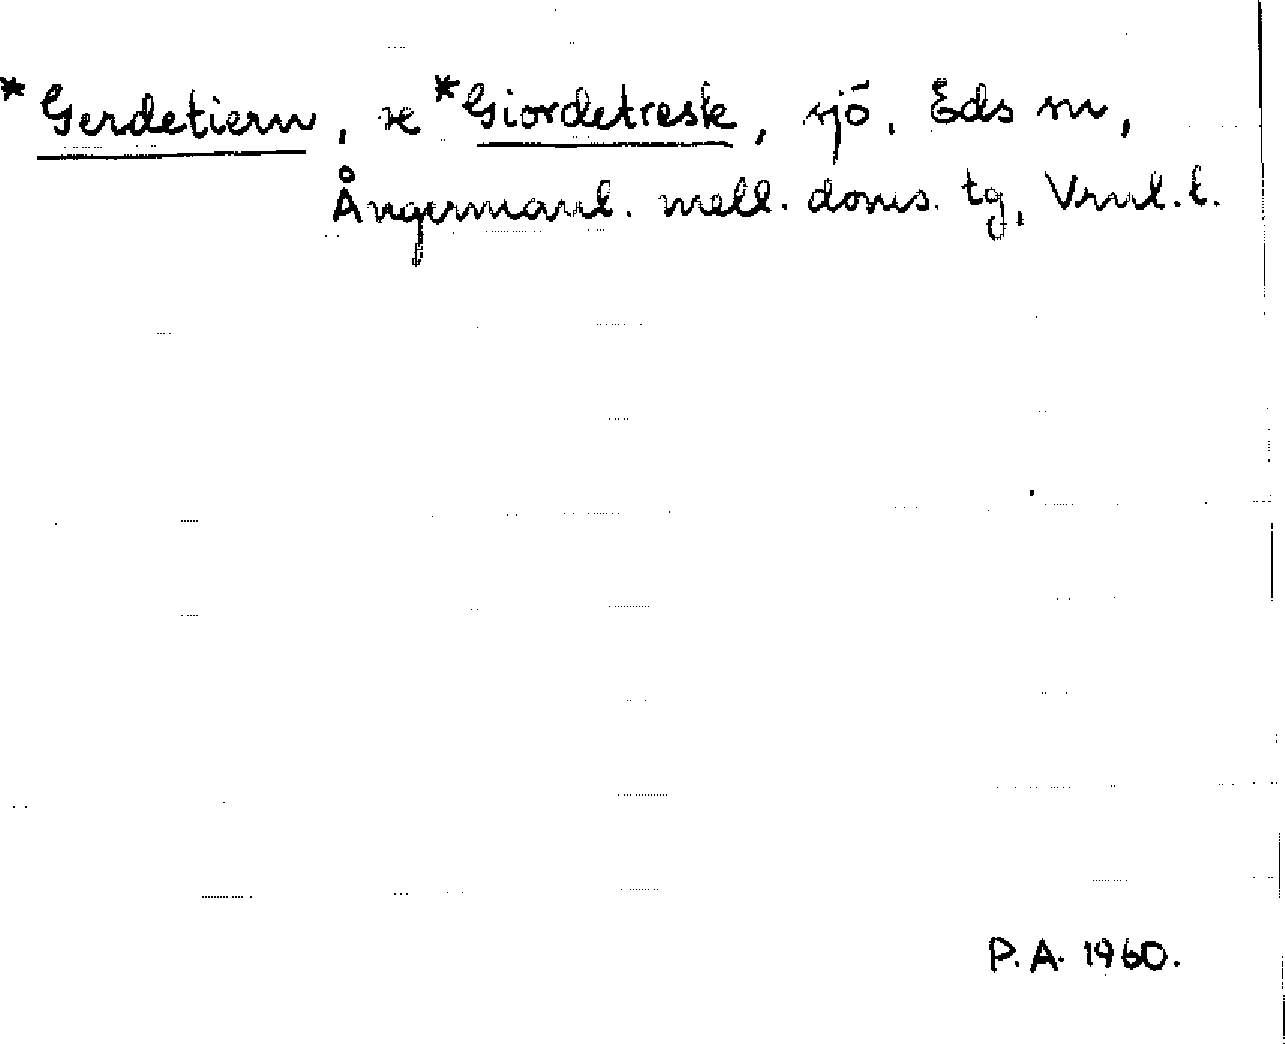 *Gerdetiern, se *Giordetreske, sjö, Eds sn,
Ångermanl. mell. doms. tg, Vrnl. l.
P.A. 1960.